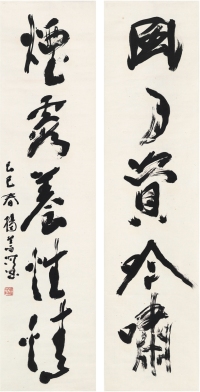 風月資吟嘯
煙霞養性情
己巳春楊善深